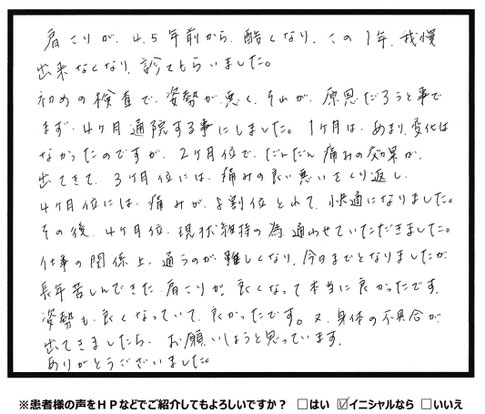 肩こりが、4、5年前から、酷くなり、この1年、我慢
出来なくなり、診てもらいました。
初めの検査で、姿勢が悪く、それが、原因だろうと事で
まず、4ヶ月通院する事にしました。1ヶ月は、あまり、変化は
なかったのですが、2ヶ月位で、だんだん痛みの効果が、
出てきて、3ヶ月位には、痛みの良い悪いをくり返し、
4ヶ月位には、痛みが、8割位とれて、快適になりました。
その後、4ヶ月位、現状維持の為、通わせていただきました。
仕事の関係上、通うのが難しくなり、今日までとなりましたが、
長年苦しんできた、肩こりが、良くなって本当に良かったです。
姿勢も、良くなっていて、良かったです。又、身体の不具合が、
出てきましたら、お願いしようと思っています。
ありがとうございました。
※患者様の声をHPなどでご紹介してもよろしいですか? □はい ☑イニシャルなら □いいえ